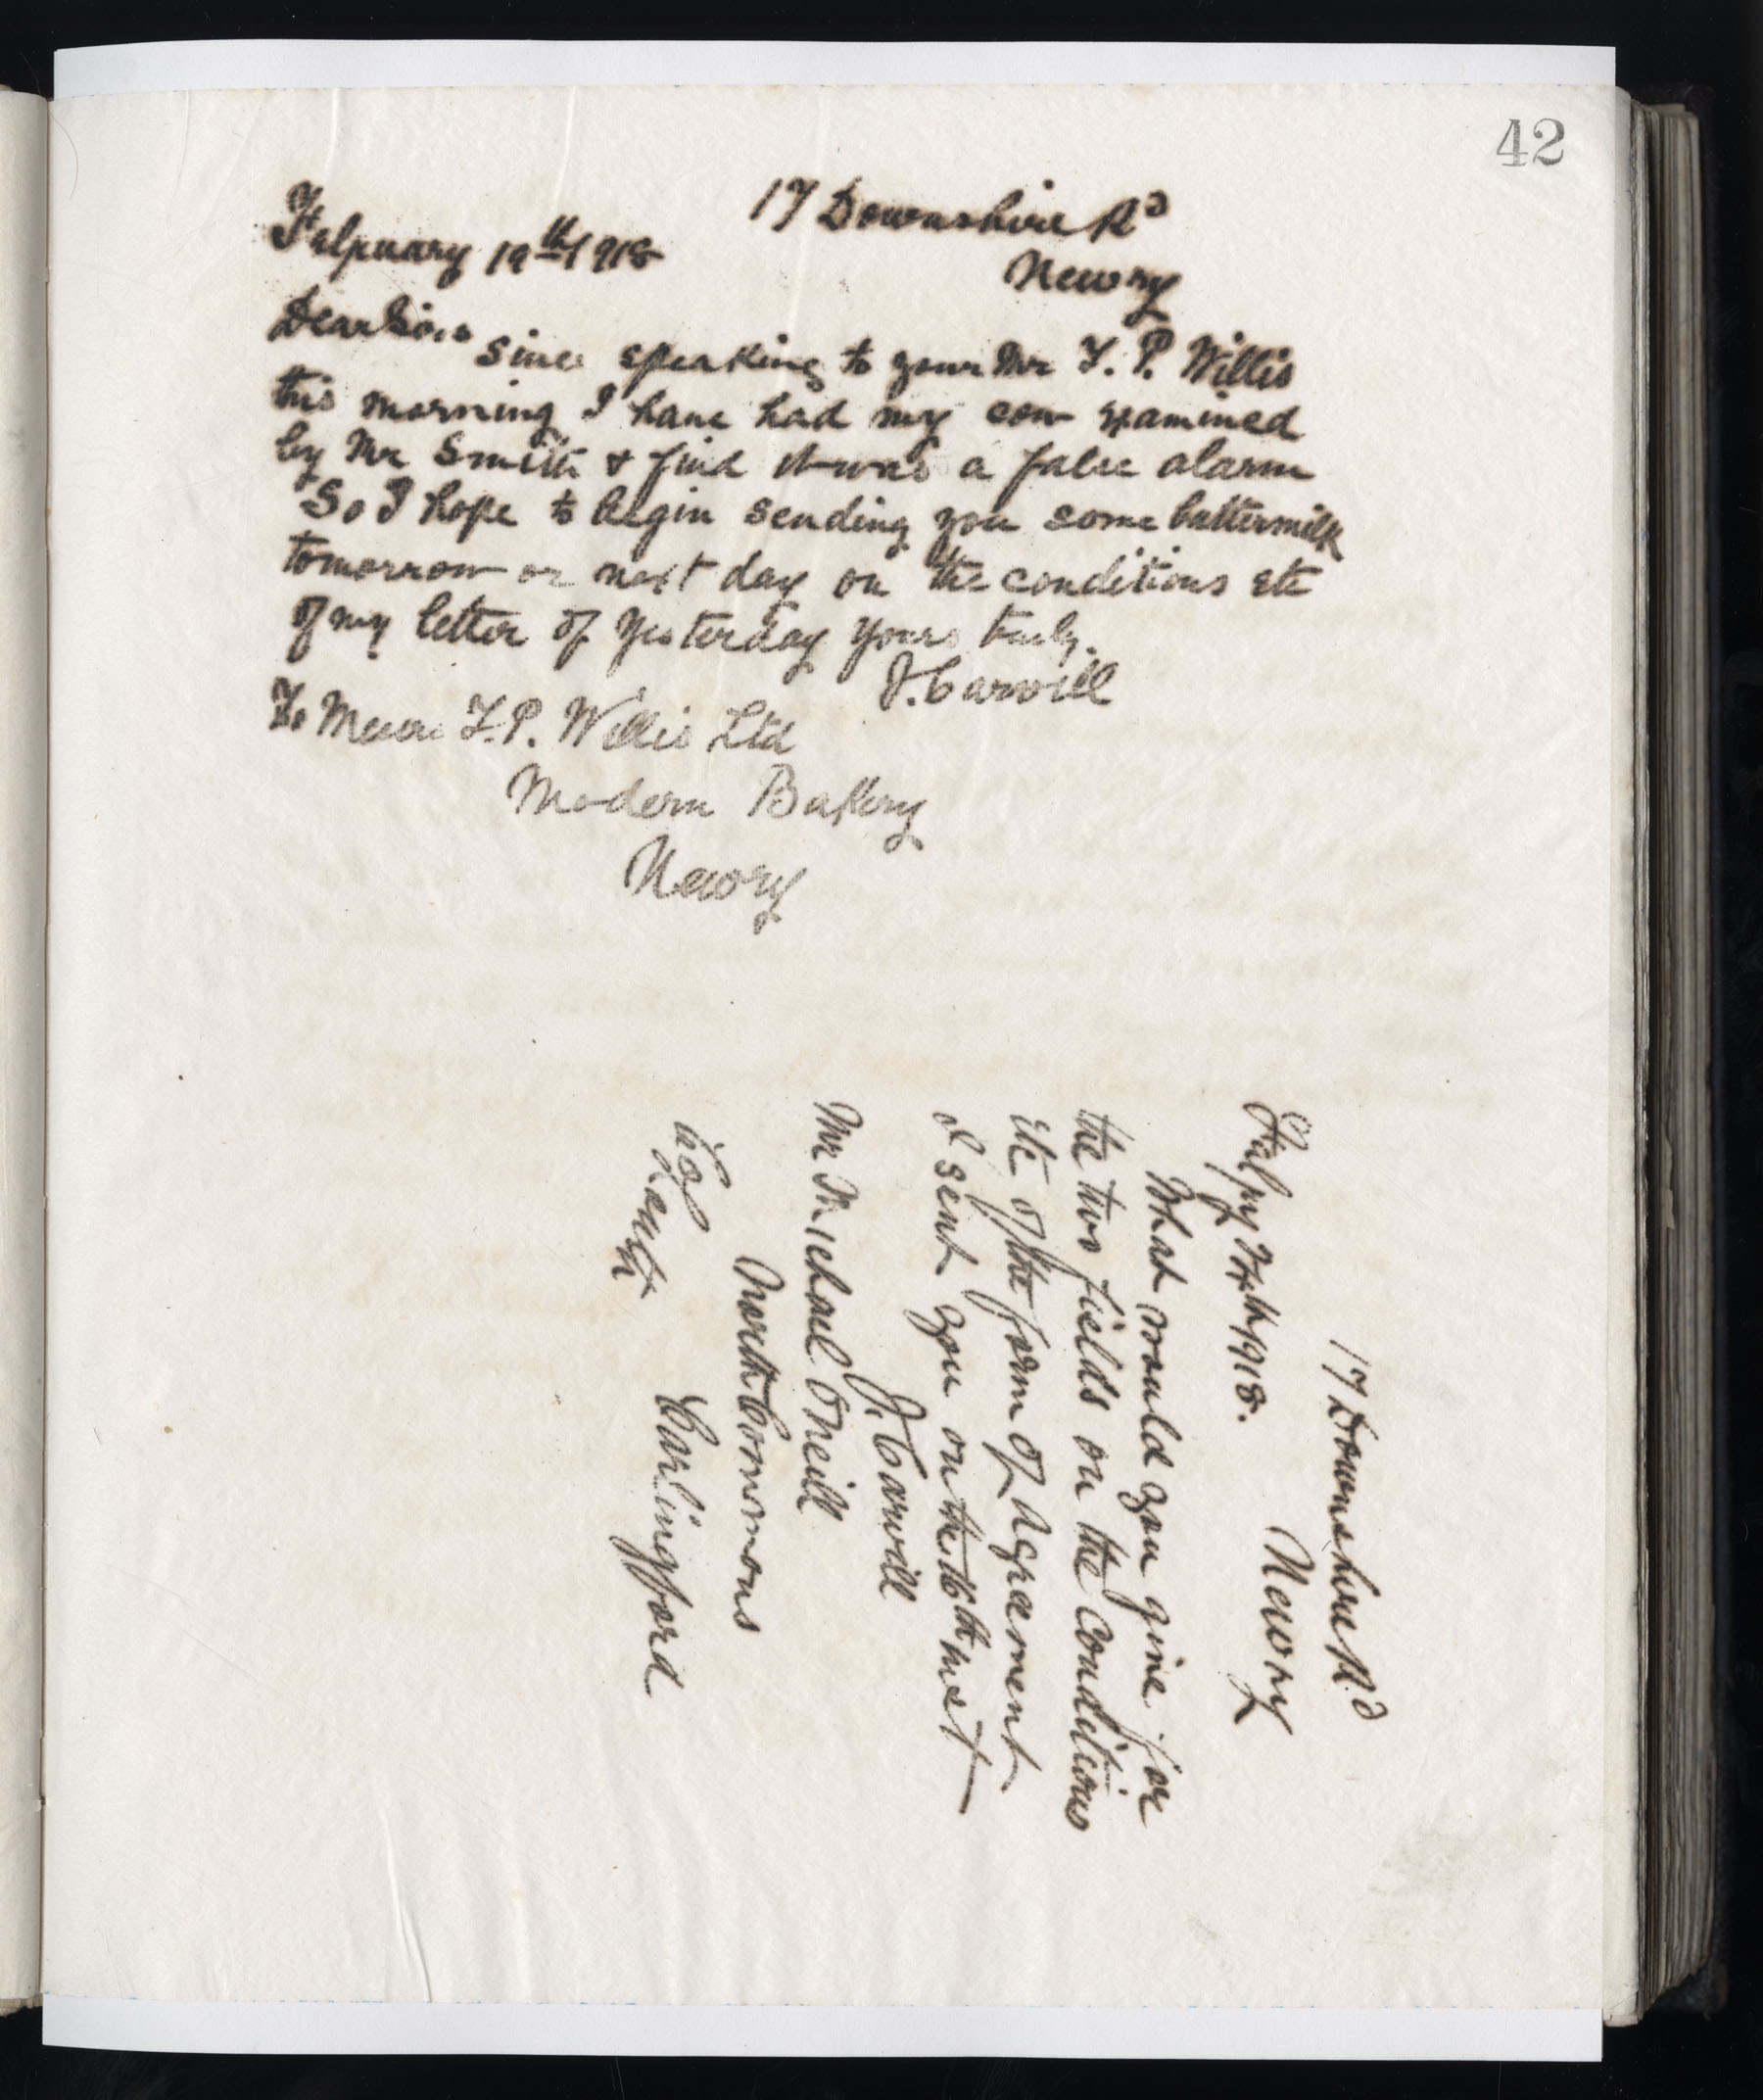 42
17 Downshire Rd
February 19th 1918
Newry
Dear Sirs
Since speaking to your Mr F. P. Willis
this morning I have had my cow examined
by Mr Smith & find it was a false alarm
So I hope to begin sending you some buttermilk
tomorrow or next day on the conditions etc
of my letter of yesterday yours truly.
J. Carvill
To Messrs F. P. Willis Ltd
Modern Bakery
Newry
17 Downshire Rd
Newry
1918.
What would you give for
the two fields on the conditions
etc of the form of agreement
I sent you on the 16th inst
J. Carvill
Mr Michael O'Neill
North Commons
Carlingford
Co Louth